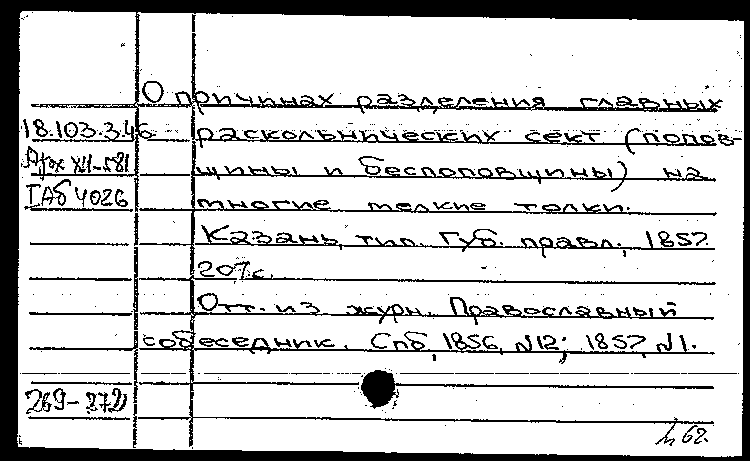 О причинах разделения главных
18.103.3.46 раскольнических сект (попов-
Арх XII-581 щины и беспоповщины) на
IАб 4026 многие мелкие толки.
Казань, тип. Губ. правл., 1857.
207с.
Отт. из журн. Православный
собеседник. Спб, 1856, №12; 1857, №1.
269-872
62.